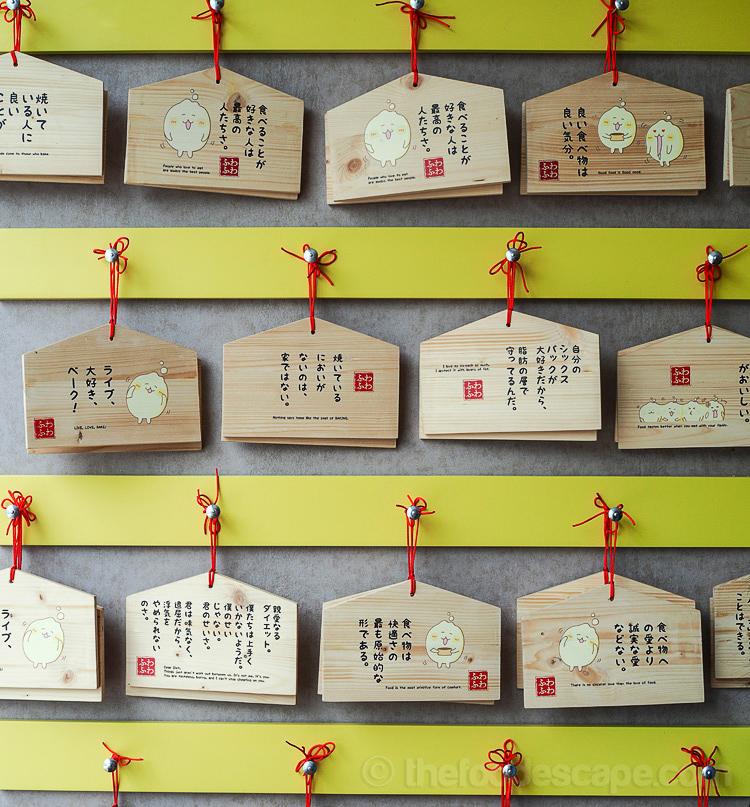 焼いて
いる人に
良い
ことが
食べることが
好きな人は
最高の
人たちさ。
People who love to eat
are always the best people.
ふわ
ふわ
食べることが
好きな人は
最高の
人たちさ。
People who love to eat
are always the best people.
ふわ
ふわ
良い食べ物は
良い気分。
Good food is Good mood.
ふわ
ふわ
ライブ、
大好き、
ベーク!
LIVE, LOVE, BAKE!
ふわ
ふわ
焼いている
においが
ないのは、
家ではない。
Nothing says home like the smell of BAKING.
ふわ
ふわ
自分の
シックス
パックが
大好きだから、
脂肪の層で
守ってるんだ。
I love my six-pack so much,
I protect it with layers of fat.
ふわ
ふわ
がおいしい。
Food tastes better when you eat with your family.
ふわ
ふわ
ライブ、
親愛なる
ダイエット。
僕たちは上手く
いかないようだ。
僕のせい
じゃない。
君のせいさ。
君は味気なく、
退屈だから、
浮気を
やめられない
のさ。
Dear Diet,
Things just won't work out between us. It's not me, it's you.
You are tasteless, boring, and I can't stop cheating on you.
ふわ
ふわ
食べ物は
快適さの
最も原始的な
形である。
Food is the most primitive form of comfort.
ふわ
ふわ
食べ物へ
の愛より
誠実な愛
などない。
There is no sincerer love than the love of food.
ふわ
ふわ
ことはできる。
© thefoodescape.com